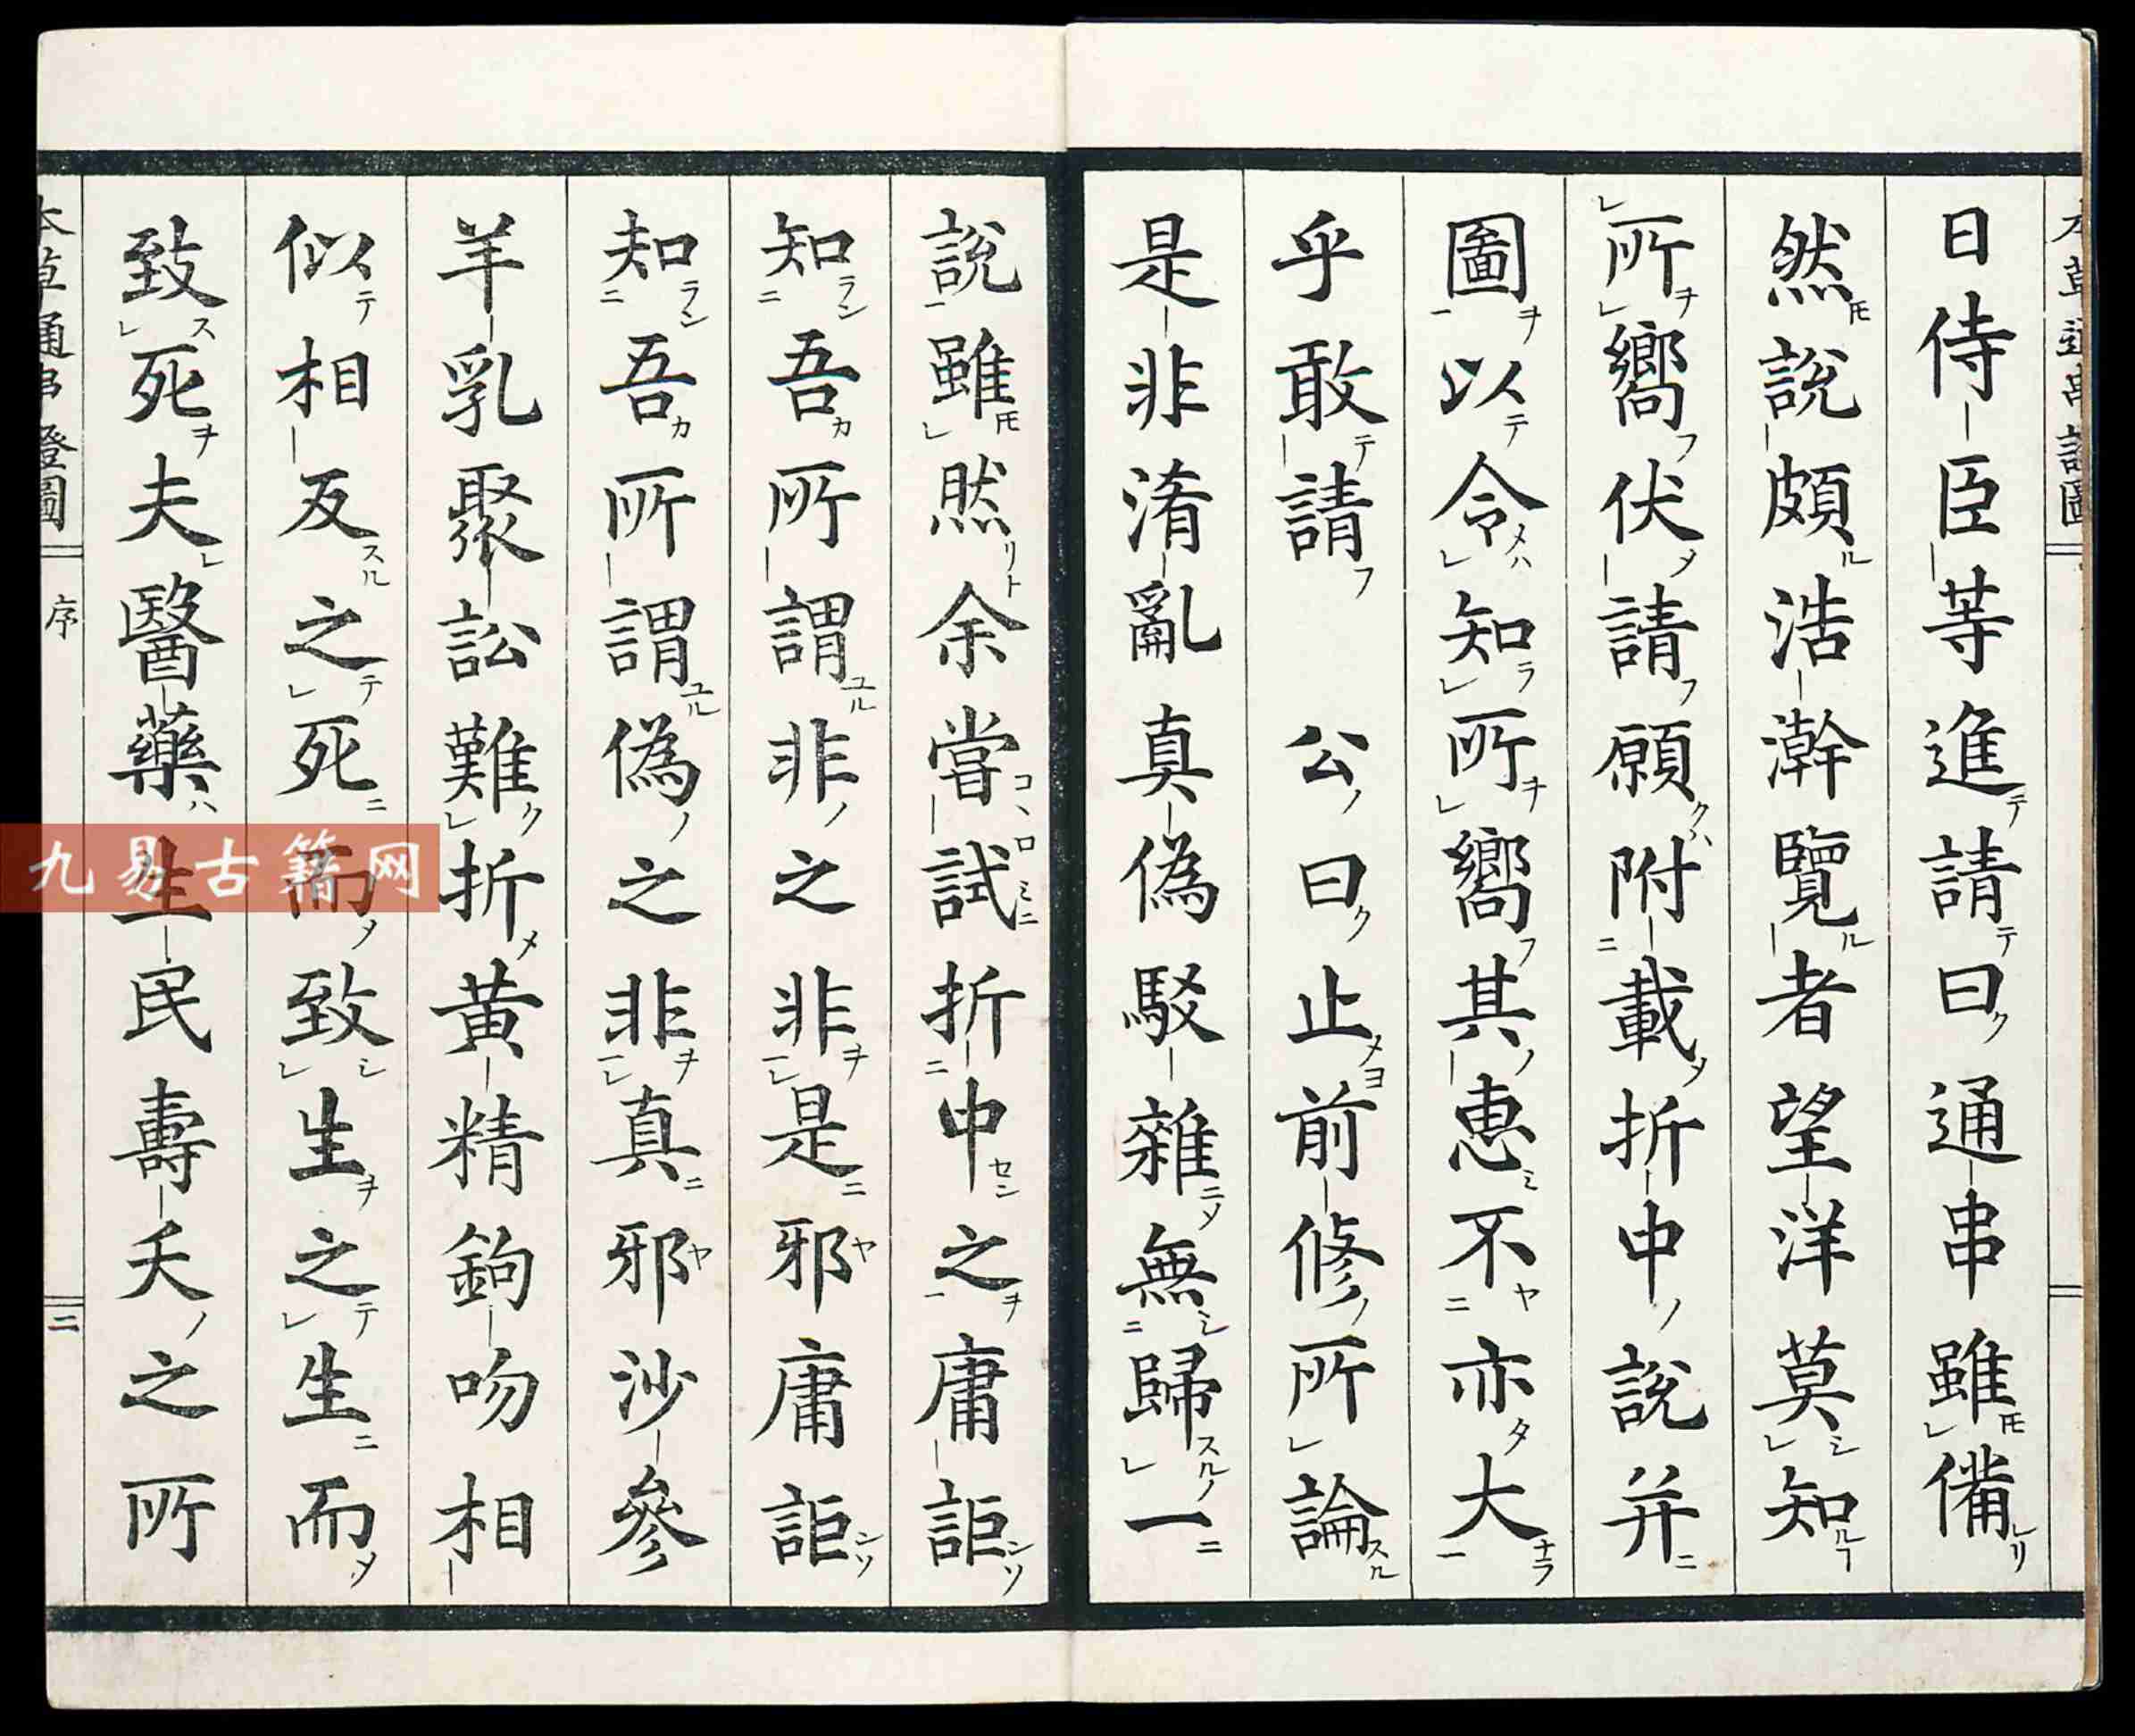 日侍臣等進請曰通串雖備
然說頗浩澣覽者望洋莫知
所嚮伏請願附載折中說并
圖以令知所嚮其惠不亦大
乎敢請　公曰止前修所論
是非淆亂真偽駁雜無歸一
說雖然余嘗試折中之庸詎
知吾所謂非之非是邪庸詎
知吾所謂偽之非真邪沙參
羊乳聚訟難折黃精鉤吻相
似相反之死而致生之生而
致死夫醫藥生民壽夭之所
本草通串證圖
序
二
九易古籍网